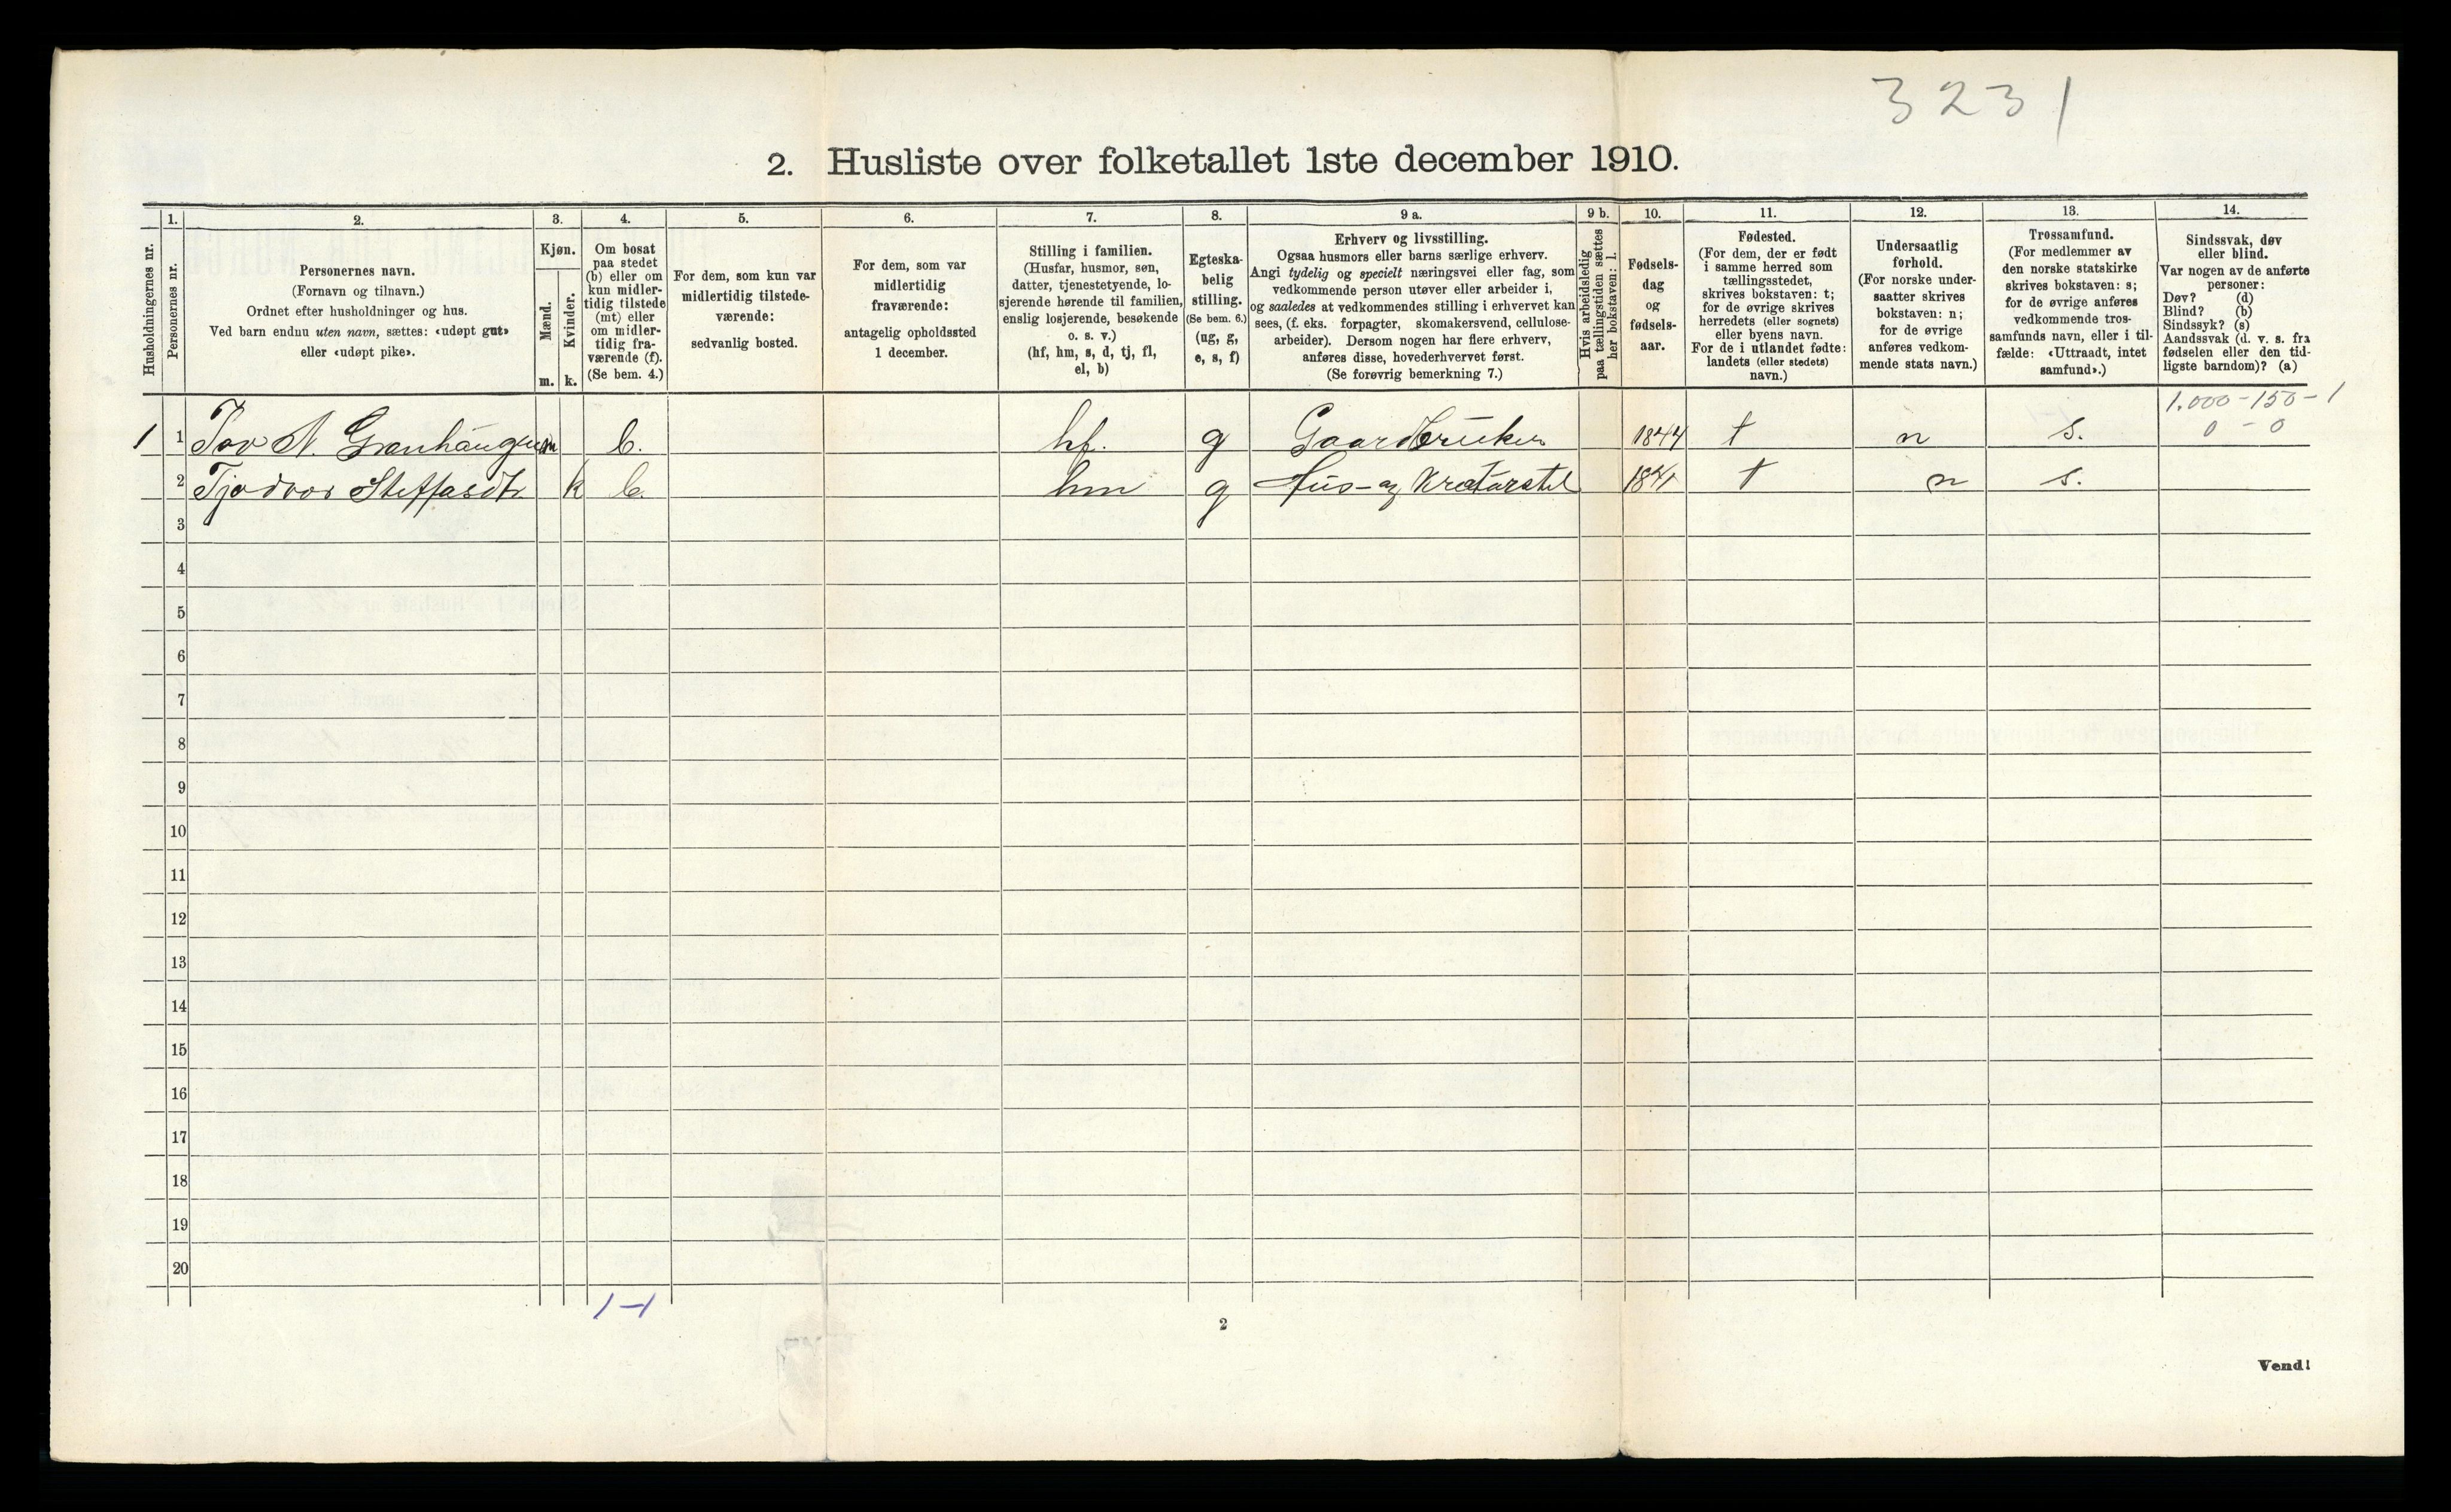 3231
2. Husliste over folketallet 1ste december 1910.
1. 2. 3. 4. 5. 6. 7. 8. 9 a. 9 b. 10. 11. 12. 13. 14.
Husholdningernes nr.
Personernes nr.
Personernes navn.
(Fornavn og tilnavn.)
Ordnet efter husholdninger og hus.
Ved barn endnu uten navn, sættes: «udøpt gut»
eller «udøpt pike».
Kjøn.
Mænd.
Kvinder.
m. k.
Om bosat
paa stedet
(b) eller om
kun midler-
tidig tilstede
(mt) eller
om midler-
tidig fra-
værende (f).
(Se bem. 4.)
For dem, som kun var
midlertidig tilstede-
værende:
sedvanlig bosted.
For dem, som var
midlertidig
fraværende:
antagelig opholdssted
1 december.
Stilling i familien.
(Husfar, husmor, søn,
datter, tjenestetyende, lo-
sjerende hørende til familien,
enslig losjerende, besøkende
o. s. v.)
(hf, hm, s, d, tj, fl,
el, b)
Egteska-
belig
stilling.
(Se bem. 6.)
(ug, g,
e, s, f)
Erhverv og livsstilling.
Ogsaa husmors eller barns særlige erhverv.
Angi tydelig og specielt næringsvei eller fag, som
vedkommende person utøver eller arbeider i,
og saaledes at vedkommendes stilling i erhvervet kan
sees, (f. eks. forpagter, skomakersvend, cellulose-
arbeider). Dersom nogen har flere erhverv,
anføres disse, hovederhvervet først.
(Se forøvrig bemerkning 7.)
Hvis arbeidsledig
paa tællingstiden sættes
her bokstaven: l.
Fødsels-
dag
og
fødsels-
aar.
Fødested.
(For dem, der er født
i samme herred som
tællingsstedet,
skrives bokstaven: t;
for de øvrige skrives
herredets (eller sognets)
eller byens navn.
For de i utlandet fødte:
landets (eller stedets)
navn.)
Undersaatlig
forhold.
(For norske under-
saatter skrives
bokstaven: n;
for de øvrige
anføres vedkom-
mende stats navn.)
Trossamfund.
(For medlemmer av
den norske statskirke
skrives bokstaven: s;
for de øvrige anføres
vedkommende tros-
samfunds navn, eller i til-
fælde: «Uttraadt, intet
samfund».)
Sindssvak, døv
eller blind.
Var nogen av de anførte
personer:
Døv? (d)
Blind? (b)
Sindssyk? (s)
Aandssvak (d. v. s. fra
fødselen eller den tid-
ligste barndom)? (a)
1.000-150-1
0-0
1 1 Tov N. m b. hf. g Gaardbruker 1844 t n s.
2 k b. hm g Hus- og 1841 t n s.
3
4
5
6
7
8
9
10
11
12
13
14
15
16
17
18
19
20
1-1
2
Vend!